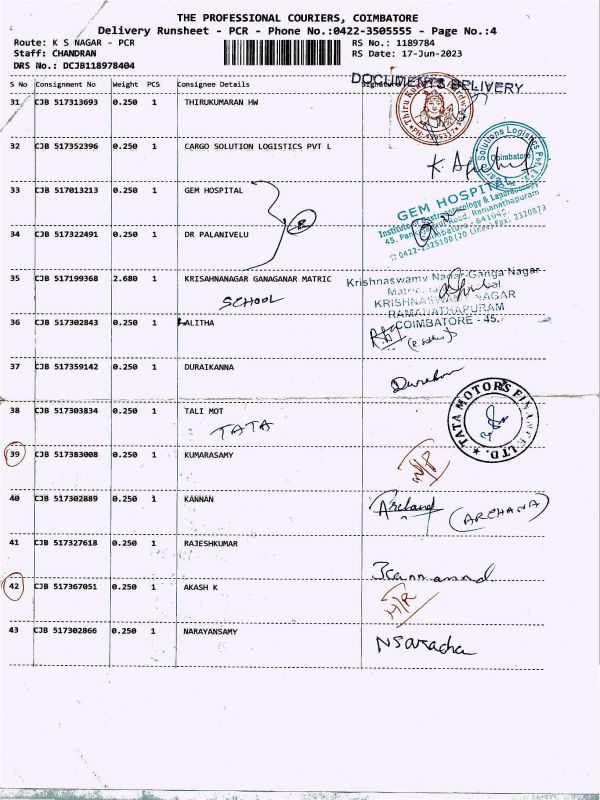 THE PROFESSIONAL COURIERS, COIMBATORE
Delivery Runsheet - PCR - Phone No.:0422-3505555 - Page No.:4
Route: K S NAGAR - PCR RS No.: 1189784
Staff: CHANDRAN RS Date: 17-Jun-2023
DRS No.: DCJB118978404
DOCUMENTS DELIVERY
S No Consignment No Weight PCS Consignee Details
31 CJB 517313693 0.250 1 THIRUKUMARAN HW
32 CJB 517352396 0.250 1 CARGO SOLUTION LOGISTICS PVT L
Solutions Logistics Pvt. Ltd.
Coimbatore
33 CJB 517013213 0.250 1 GEM HOSPITAL
GEM HOSPITAL
Institute of Gastroenterology & Laparoscopy
Ramanathapuram
34 CJB 517322491 0.250 1 DR PALANIVELU
35 CJB 517199368 2.680 1 KRISAHNANAGAR GANAGANAR MATRIC
SCHOOL
Krishnaswamy Nagar-Ganga Nagar
KRISHNASWAMY NAGAR
RAMANATHAPURAM
COIMBATORE - 45.
36 CJB 517302843 0.250 1 LALITHA
37 CJB 517359142 0.250 1 DURAIKANNA
38 CJB 517303834 0.250 1 TALI MOT
TATA
TATA MOTORS FINANCE LTD.
39 CJB 517383008 0.250 1 KUMARASAMY
40 CJB 517302889 0.250 1 KANNAN
(ARCHANA)
41 CJB 517327618 0.250 1 RAJESHKUMAR
42 CJB 517367051 0.250 1 AKASH K
43 CJB 517302866 0.250 1 NARAYANSAMY